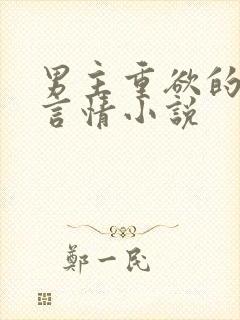 男主重欲的
言情小説
鄭一民